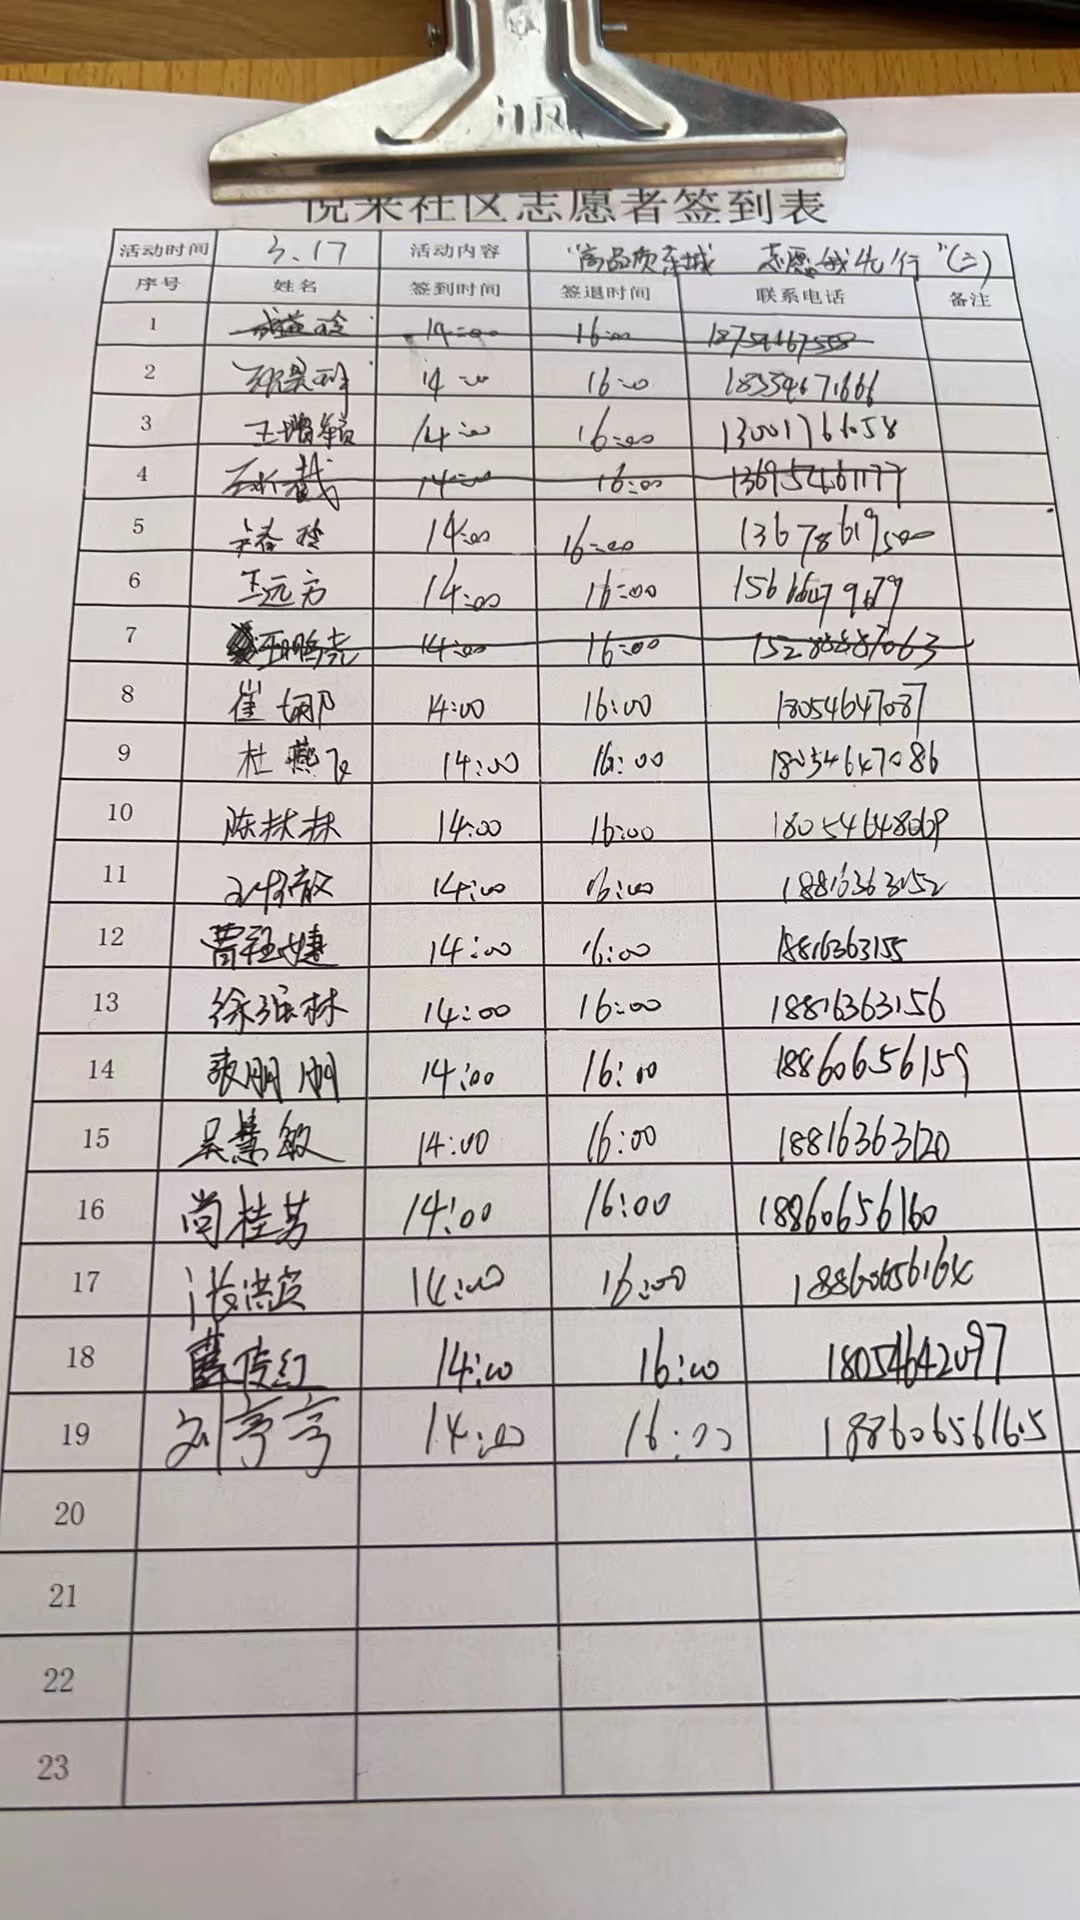 悦来社区志愿者签到表
活动时间 3.17 活动内容 "高品质东城 志愿我先行"(二)
序号 姓名 签到时间 签退时间 联系电话 备注
1 14:00 16:00
2 14:00 16:00 18554671666
3 王增颖 14:00 16:00 13001766058
4 14:00 16:00 13695461177
5 14:00 16:00 13678619500
6 王远方 14:00 16:00
7 14:00 16:00 15288887063
8 崔娜 14:00 16:00 18054647087
9 杜燕飞 14:00 16:00 18054647086
10 陈林林 14:00 16:00 18054648069
11 14:00 16:00 18816363152
12 曹钰婕 14:00 16:00 18816363155
13 徐强林 14:00 16:00 18816363156
14 裴朋朋 14:00 16:00 18860656159
15 吴慧敏 14:00 16:00 18816363120
16 尚桂芳 14:00 16:00 18860656160
17 张洪滨 14:00 16:00 18860656164
18 薛俊红 14:00 16:00 18054642097
19 刘亭亭 14:00 16:00 18860656165
20
21
22
23